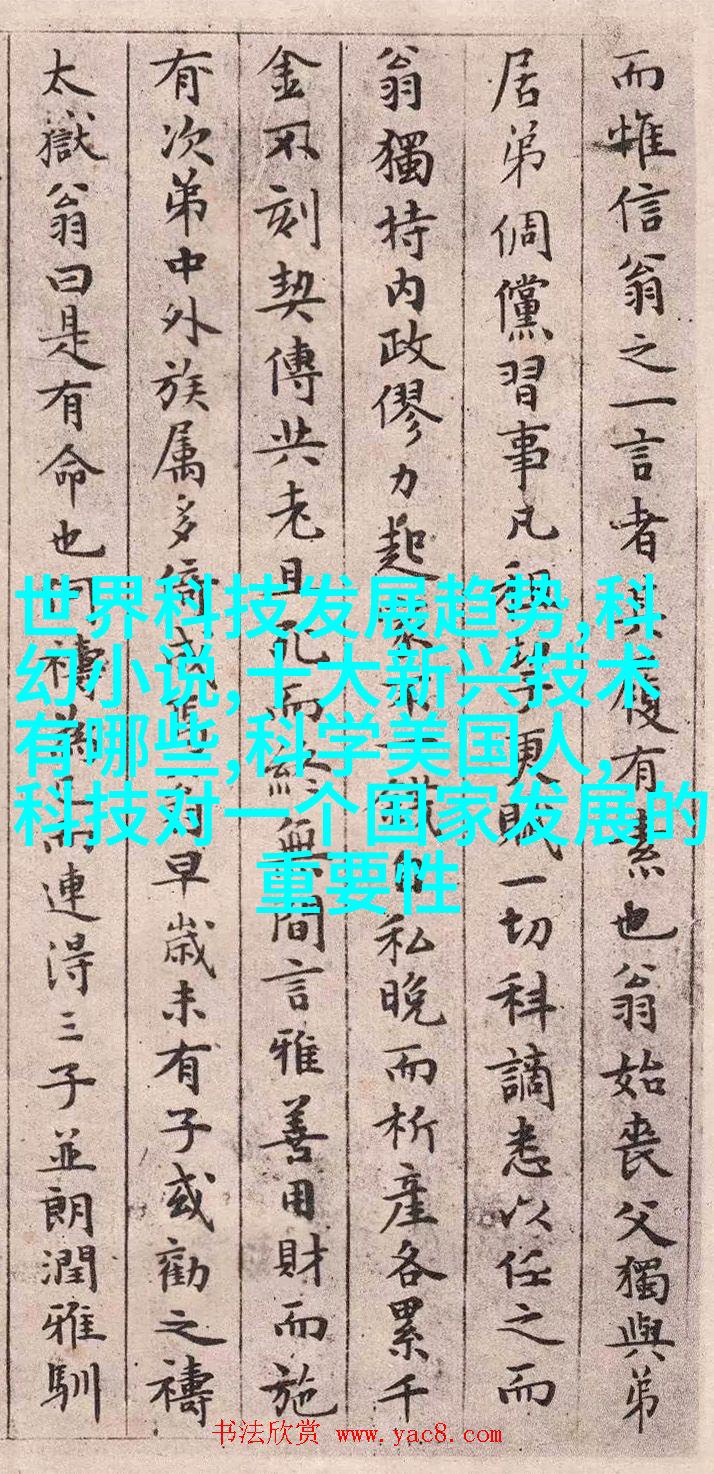 而惟信翁之一言者其履有素也翁始喪父獨與弟
居弟倜儻習事凡租挈更賦一切科謫悉以任之而
翁獨持内政僇力起家 私晚而析產各累千
金不刻契傳共老且死而終無間言雅善用財而施
有次第中外族属多倚 早歲未有子或勸之禱
太嶽翁曰是有命也 禱 連得三子並朗潤雅馴
世界科技发展趋势,科
幻小说,十大新兴技术
有哪些,科学美国人,
科技对一个国家发展的
重要性
书法欣赏 www.yac8.com